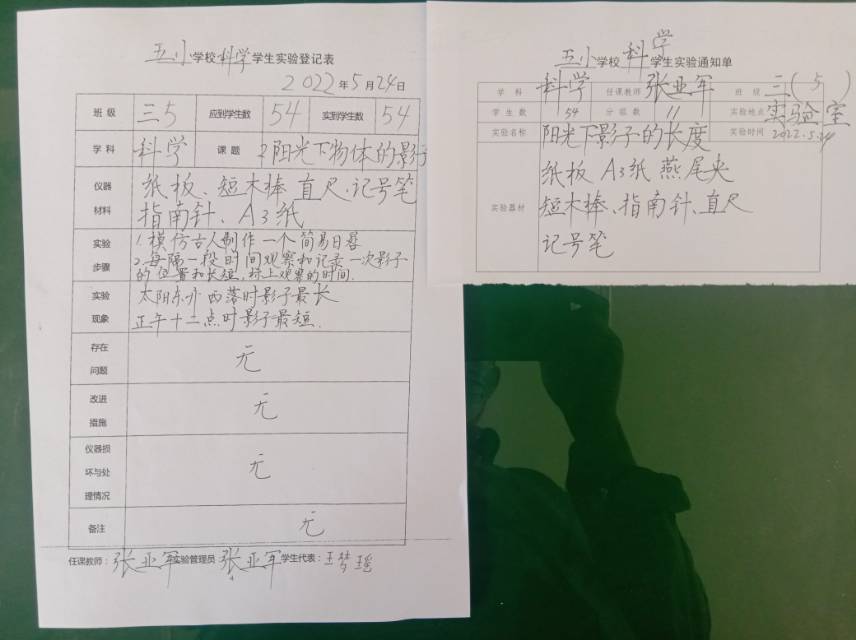 五小学校科学学生实验登记表
2022年5月24日
班级 三5 应到学生数 54 实到学生数 54
学科 科学 课题 2阳光下物体的影子
仪器材料 纸板、短木棒 直尺、记号笔
指南针、A3纸
实验步骤 1.模仿古人制作一个简易日晷
2.每隔一段时间观察和记录一次影子
的位置和长短,标上观察的时间.
实验现象 太阳东升西落时影子最长
正午十二点时影子最短.
存在问题 无
改进措施 无
仪器损坏与处理情况 无
备注 无
任课教师:张亚军 实验管理员 张亚军 学生代表:王梦瑶
五小学校科学学生实验通知单
学科 科学 任课教师 张亚军 班级 三(5)
学生数 54 分组数 11 实验地点 实验室
实验名称 阳光下影子的长度 实验时间 2022.5.24
实验器材 纸板 A3纸 燕尾夹
短木棒、指南针、直尺
记号笔